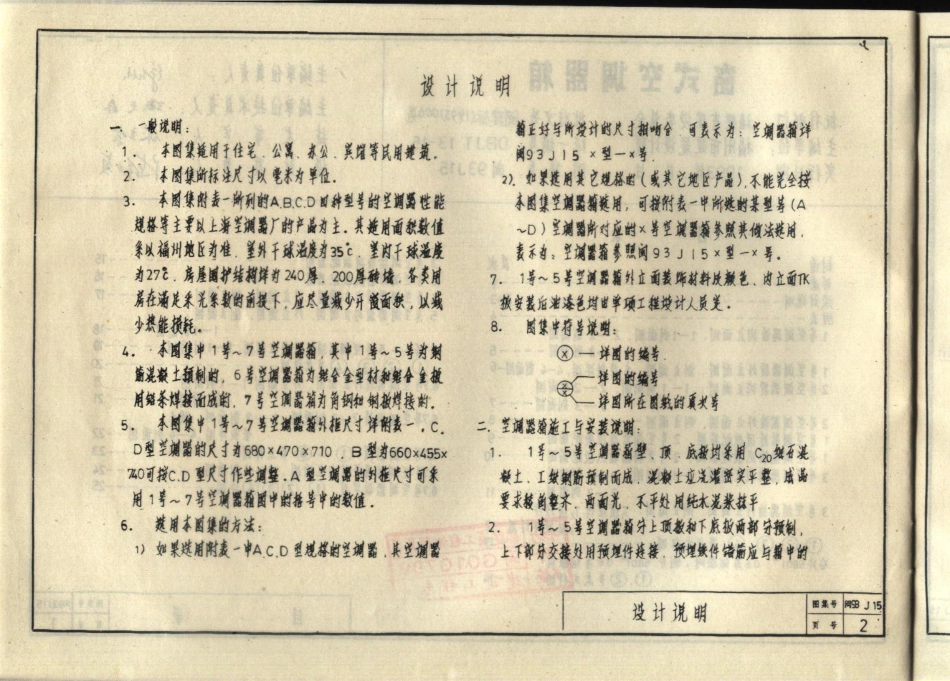 设计说明
一. 一般说明:
1. 本图集适用于住宅、公寓、办公、宾馆等民用建筑。
2. 本图集所标注尺寸以毫米为单位。
3. 本图集附表一所列的A.B.C.D四种型号的空调器性能
规格等主要以上海空调器厂的产品为主。其适用面积数值
采以福州地区为准,室外干球温度为35℃,室内干球温度
为27℃,房屋围护结构详为240厚、200厚砖墙,各类用
房在满足采光系数的前提下,应尽量减少开窗面积,以减
少热能损耗。
4. 本图集中1号~7号空调器箱,其中1号~5号为钢
筋混凝土预制的,6号空调器箱为铝合金型材和铝合金板
用铝条焊接而成的,7号空调器箱为角钢和钢板焊接的。
5. 本图集中1号~7号空调器箱外框尺寸详附表一。C、
D型空调器的尺寸为680×470×710,B型为660×455×
740可按C.D型尺寸作些调整。A型空调器的外框尺寸可采
用1号~7号空调器箱图中的括号中的数值。
6. 选用本图集的方法:
1) 如果选用附表一中A.C.D型规格的空调器,其空调器
箱正好与所设计的尺寸相吻合 可表示为:空调器箱详
闽93J15 ×型—×号.
2). 如果选用其它规格的(或其它地区产品),不能完全按
本图集空调器箱选用,可按附表一中所选的某型号(A
~D)空调器所对应的×号空调器箱参照其做法选用,
表示为:空调器箱参照闽93J15×型—×号。
7. 1号~5号空调器箱外立面装饰材料及颜色、内立面TK
板安装后油漆色均由单项工程设计人员定。
8. 图集中符号说明:
× — 详图的编号
详图的编号
详图所在图纸的页次号
二. 空调器箱施工与安装说明:
1. 1号~5号空调器箱壁、顶、底板均采用C20细石混
凝土、I级钢筋预制而成,混凝土应浇灌密实平整,成品
要求棱角整齐、两面光、不平处用纯水泥浆抹平
2. 1号~5号空调器箱分上顶板和下底板两部分预制,
上下部分交接处用预埋件连接,预埋铁件锚筋应与箱中的
设计说明
图集号 闽93J15
页号 2